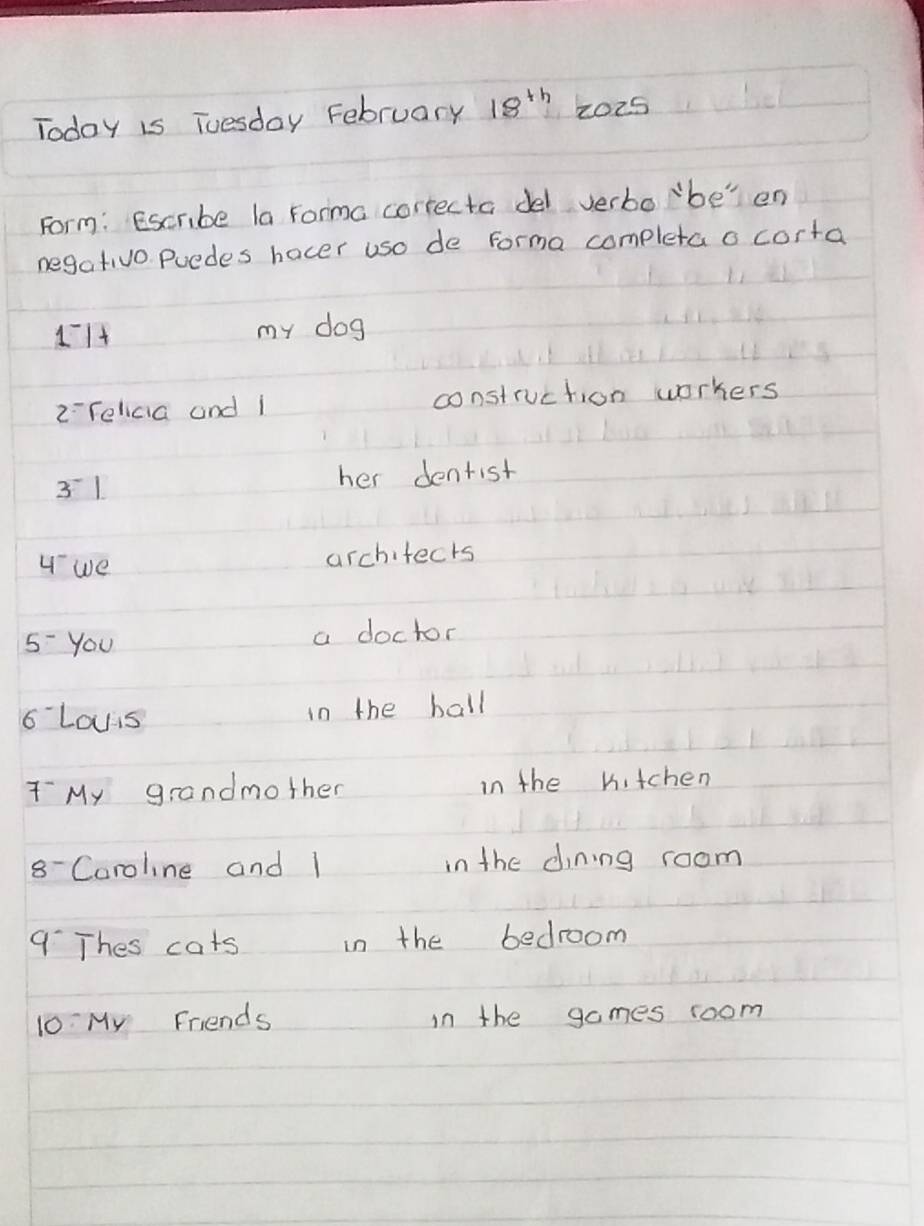 Today is Tuesday February 18th 2025
Form: Escribe la forma correcta del verbo "be" en
negativo. Puedes hacer uso de forma completa o corta
1- It my dog
2- Felicia and I construction workers
3- I her dentist
4- We architects
5- You a doctor
6- Louis in the hall
7- My grandmother in the kitchen
8- Caroline and I in the dining room
9- Thes cats in the bedroom
10- My Friends in the games room